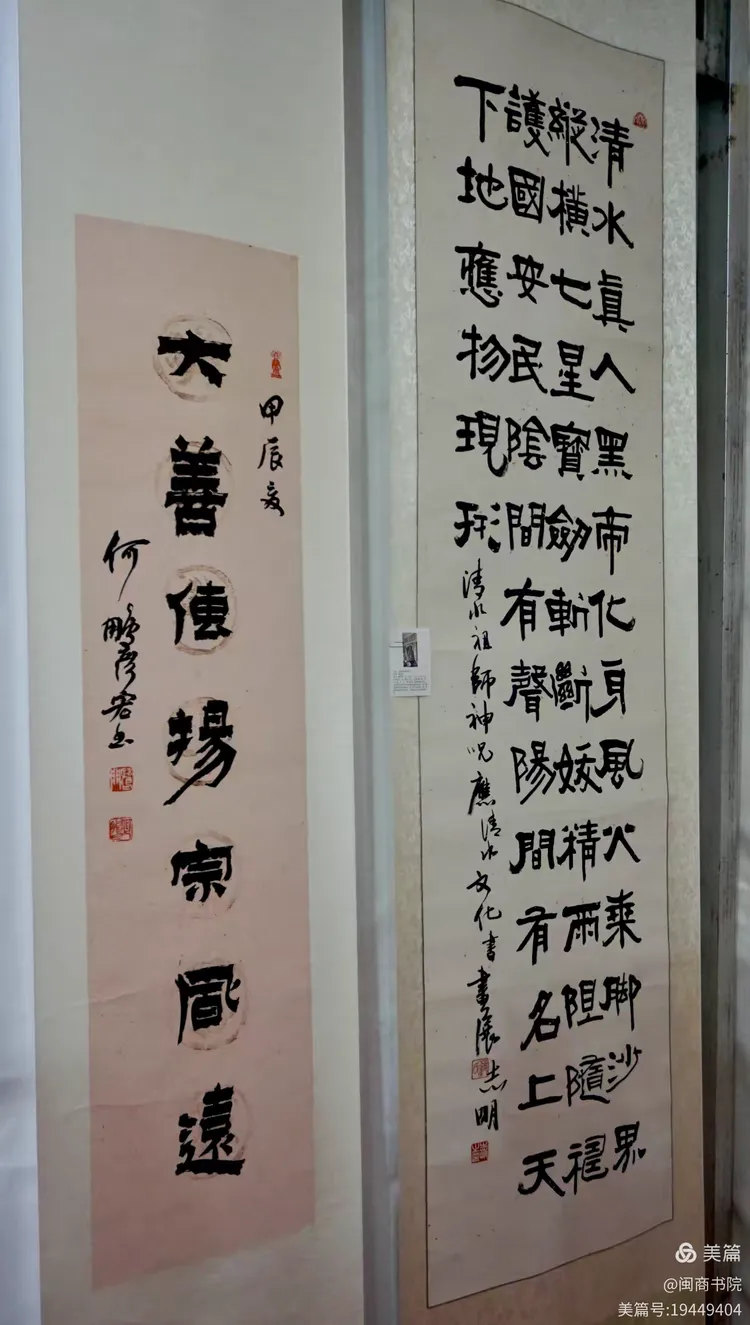 清水眞人黑帝化身風火乘脚沙界
縱橫七星寶劍斬斷妖精雨阻隨
護國安民陰間有聲陽間有名上天
下地應物現形
清水祖師神咒應清水文化書畫展志明
甲辰夏
大善傳揚宗風遠
何鵬彥書
美篇
@闽商书院
美篇号:19449404